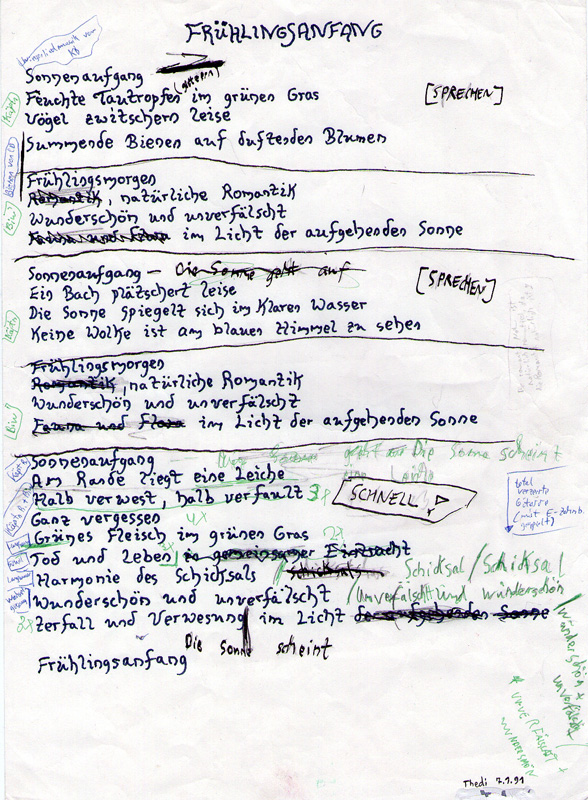 FRÜHLINGSANFANG
Sonnenaufgang
(gestern)
Feuchte Tautropfen im grünen Gras
[SPRECHEN]
Vögel zwitschern leise
Summende Bienen auf duftenden Blumen
Frühlingsmorgen
Romantik, natürliche Romantik
Wunderschön und unverfälscht
Fauna und Flora im Licht der aufgehenden Sonne
Sonnenaufgang – Die Sonne geht auf
[SPRECHEN]
Ein Bach plätschert leise
Die Sonne spiegelt sich im Klaren Wasser
Keine Wolke ist am blauen Himmel zu sehen
Frühlingsmorgen
Romantik, natürliche Romantik
Wunderschön und unverfälscht
Fauna und Flora im Licht der aufgehenden Sonne
Sonnenaufgang – Die Sonne scheint
Am Rande liegt eine Leiche
Halb verwest, halb verfault 3x
SCHNELL
Ganz vergessen 4x
Grünes Fleisch im grünen Gras 2x
total
verzerrte
Gitarre
Tod und Leben in gemeinsamer Eintracht
Harmonie des Schicksals / Schicksals Schicksal / Schicksal
Wunderschön und unverfälscht / Unverfälscht und wunderschön
2x Zerfall und Verwesung im Licht der aufgehenden Sonne
Die Sonne scheint
Frühlingsanfang
Wunderschön +
unverfälscht
* UNVERFÄLSCHT +
WUNDERSCHÖN
Thedi 7.1.91